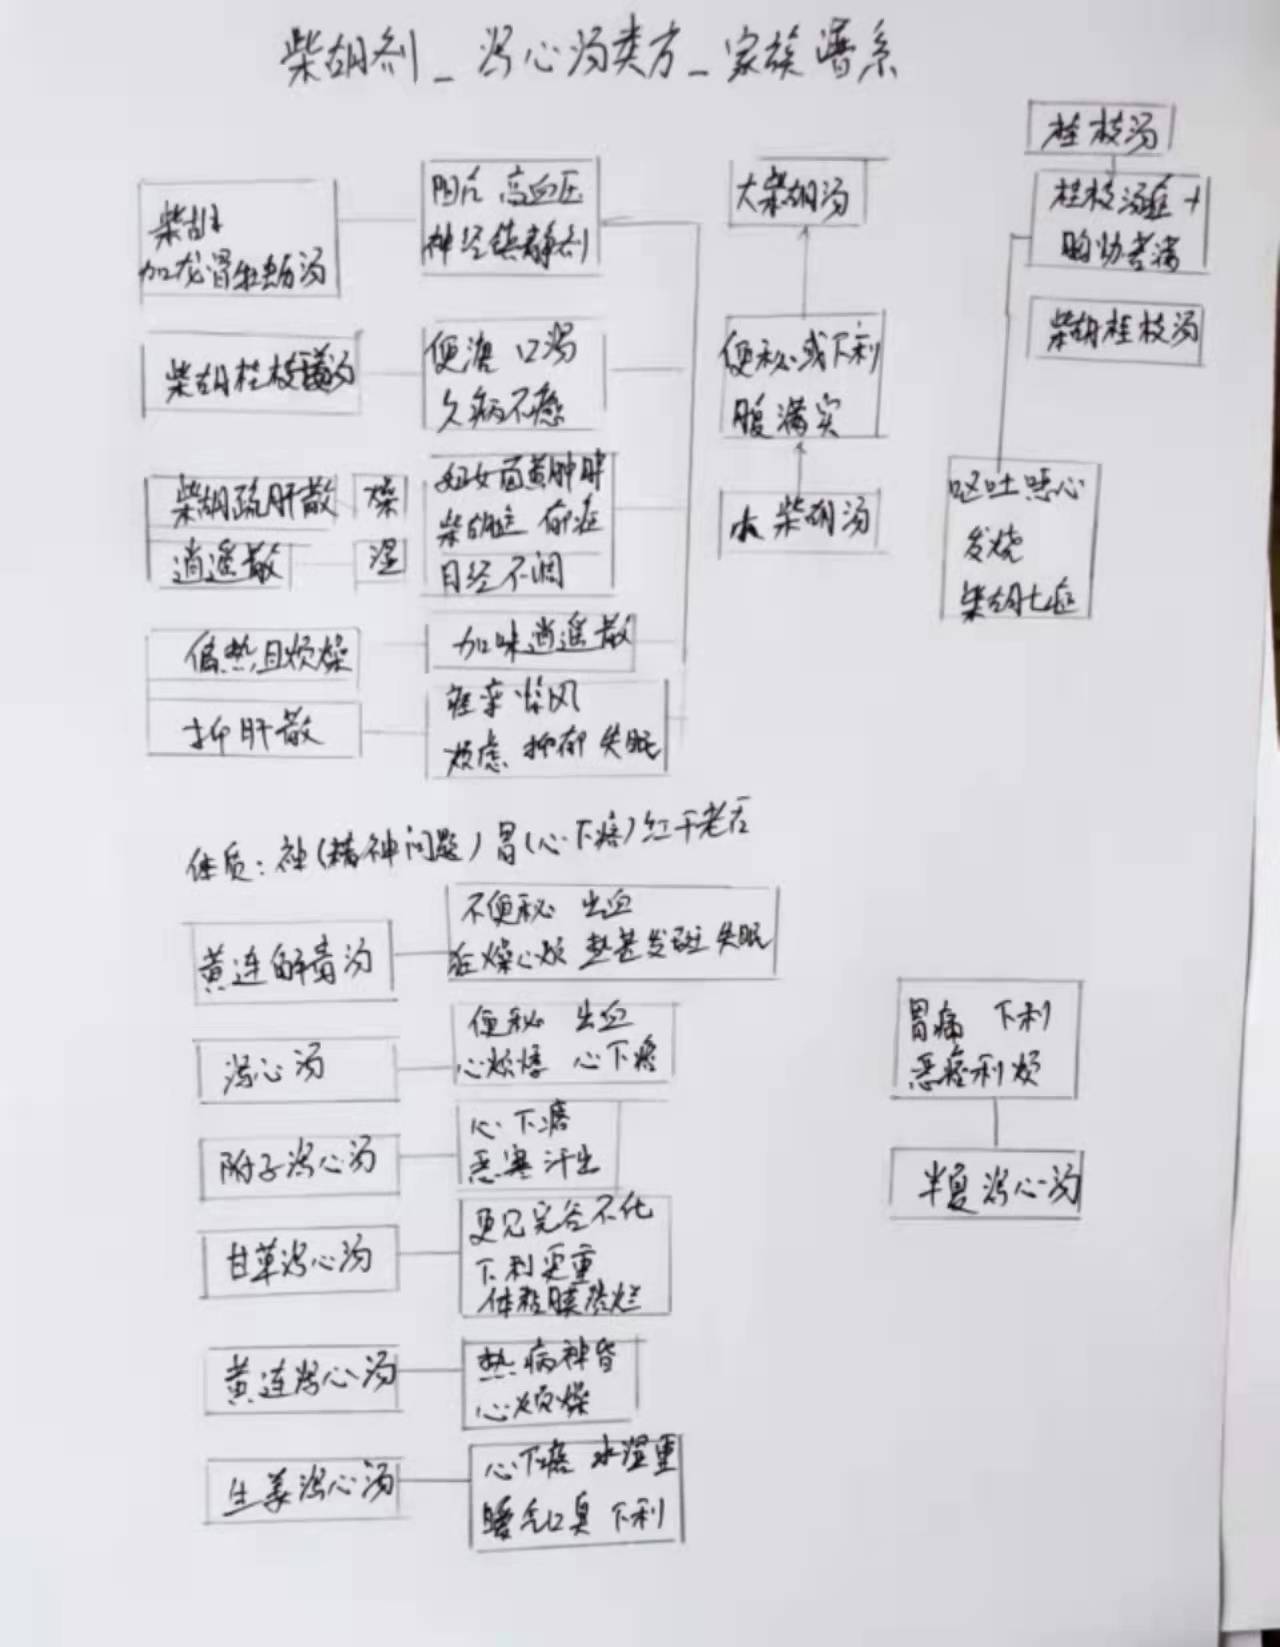 柴胡剂_泻心汤类方_家族谱系
柴胡
加龙骨牡蛎汤
阳亢 高血压
神经镇静剂
大柴胡汤
桂枝汤
桂枝汤症+
胸胁苦满
柴胡桂枝汤
柴胡桂枝汤
便溏 口渴
久病不愈
便秘或下利
腹满实
柴胡疏肝散 燥
逍遥散 湿
妇女面黄肿胖
柴胡症 郁症
月经不调
柴胡汤
呕吐恶心
发烧
柴胡七症
偏热且烦燥
加味逍遥散
抑肝散
惊风
焦虑 抑郁 失眠
体质：神(精神问题)胃(心下痞)红干老舌
黄连解毒汤
不便秘 出血
狂燥心烦 热甚发斑 失眠
泻心汤
便秘 出血
心烦悸 心下痞
附子泻心汤
心下痞
恶寒汗出
甘草泻心汤
更见完谷不化
下利更重
体黏膜溃烂
黄连泻心汤
热病神昏
心烦燥
生姜泻心汤
心下痞 水湿重
嗳气口臭 下利
胃痛 下利
恶痞利烦
半夏泻心汤